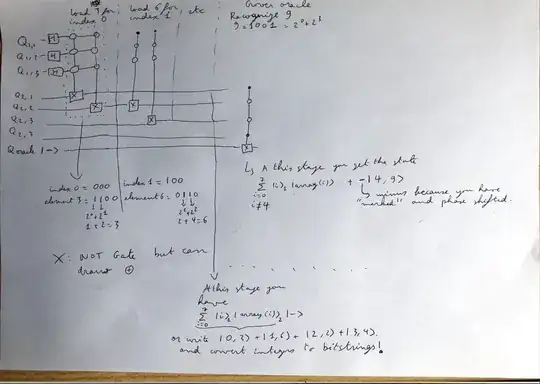 load 3 for
index 0
load 6 for
index 1, etc
Grover oracle
Recognize 9
9 = 1001 = 2^0+2^3
Q1,1 H
Q1,2 H
Q1,3 H
Q2,1 X
Q2,2 X X
Q2,3 X
Q2,4
Qoracle |-> X
index 0 = 000
element 3 = 1100
2^0+2^1
1+2=3
index 1 = 100
element 6 = 0110
2^1+2^2
2+4=6
↳ A this stage you get the state
7
Σ |i>2 |array(i)> + -|4,9>
i=0
i≠4
minus because you have
"marked" and phase shifted.
X: NOT Gate but can
draw ⊕
. . . . . . .
At this stage you
have
7
Σ |i>2 |array(i)>2 |->
i=0
or write |0,3>+|1,6>+|2,2>+|3,4>.
and convert integers to bitstrings!